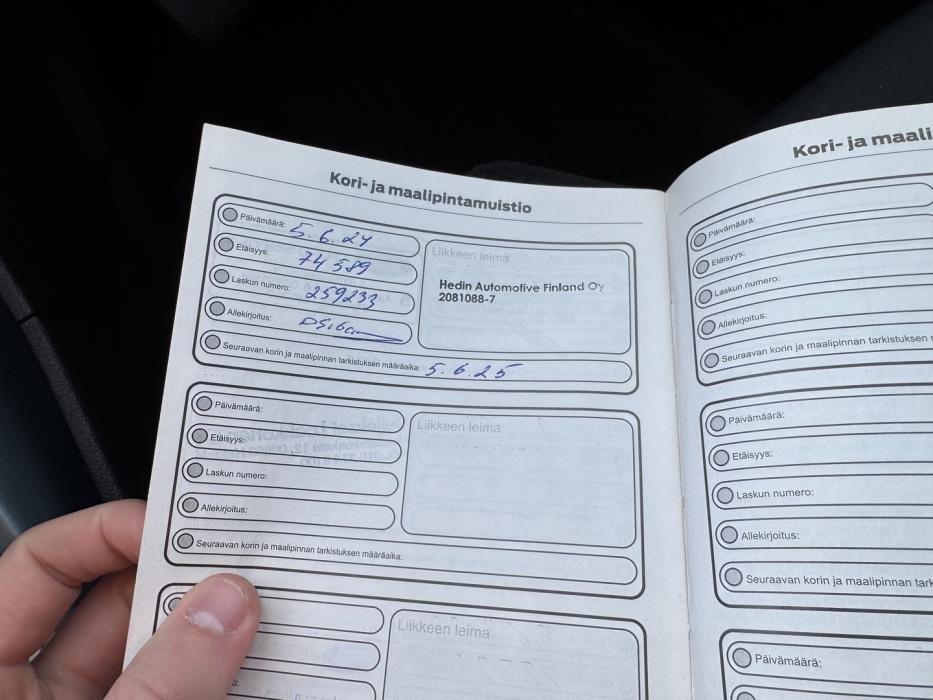 Kori- ja maalipintamuistio
Päivämäärä: 5.6.24
Etäisyys: 74 589
Laskun numero: 259233
Allekirjoitus:
Liikkeen leima
Hedin Automotive Finland Oy
2081088-7
Seuraavan korin ja maalipinnan tarkistuksen määräaika: 5.6.25
Päivämäärä:
Etäisyys:
Laskun numero:
Allekirjoitus:
Liikkeen leima
Seuraavan korin ja maalipinnan tarkistuksen määräaika:
Liikkeen leima
Kori- ja maali
Päivämäärä:
Etäisyys:
Laskun numero:
Allekirjoitus:
Seuraavan korin ja maalipinnan tarkistuksen
Päivämäärä:
Etäisyys:
Laskun numero:
Allekirjoitus:
Seuraavan korin ja maalipinnan tark
Päivämäärä: